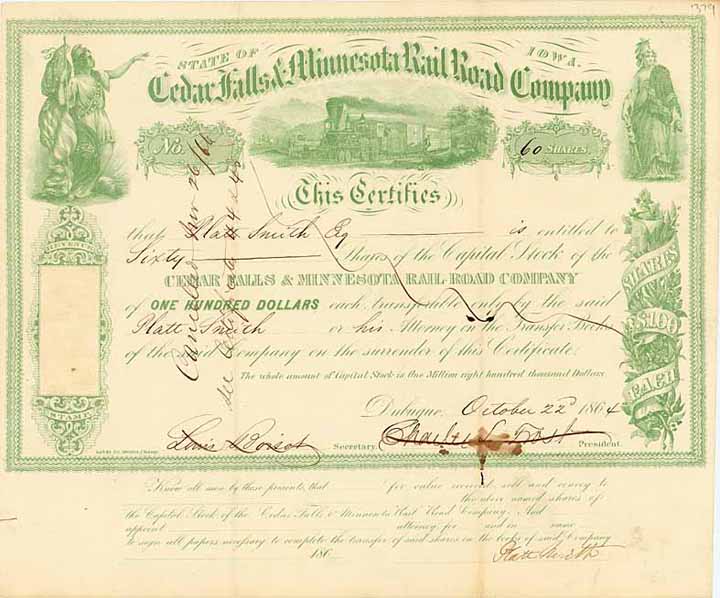 1379
STATE OF IOWA.
Cedar Falls & Minnesota Rail Road Company
No. 60 SHARES.
This Certifies
that Platt Smith Esq is entitled to
Sixty Shares of the Capital Stock of the
CEDAR FALLS & MINNESOTA RAIL-ROAD COMPANY
of ONE HUNDRED DOLLARS each, transferable only by the said
Platt Smith or his Attorney on the Transfer Books
of the said Company on the surrender of this Certificate.
The whole amount of Capital Stock is One Million eight hundred thousand Dollars.
Dubuque, October 22d 1864
Secretary. President.
REVENUE
STAMP
SHARES
$100
EACH
Cancelled
see Certificate 44 & 45
Know all men by these presents, that for value received, sell and convey to
the above named shares of
the Capital Stock of the Cedar Falls & Minnesota Rail Road Company. And
appoint attorney for and in name
to sign all papers necessary to complete the transfer of said shares on the books of said Company
186
Platt Smith